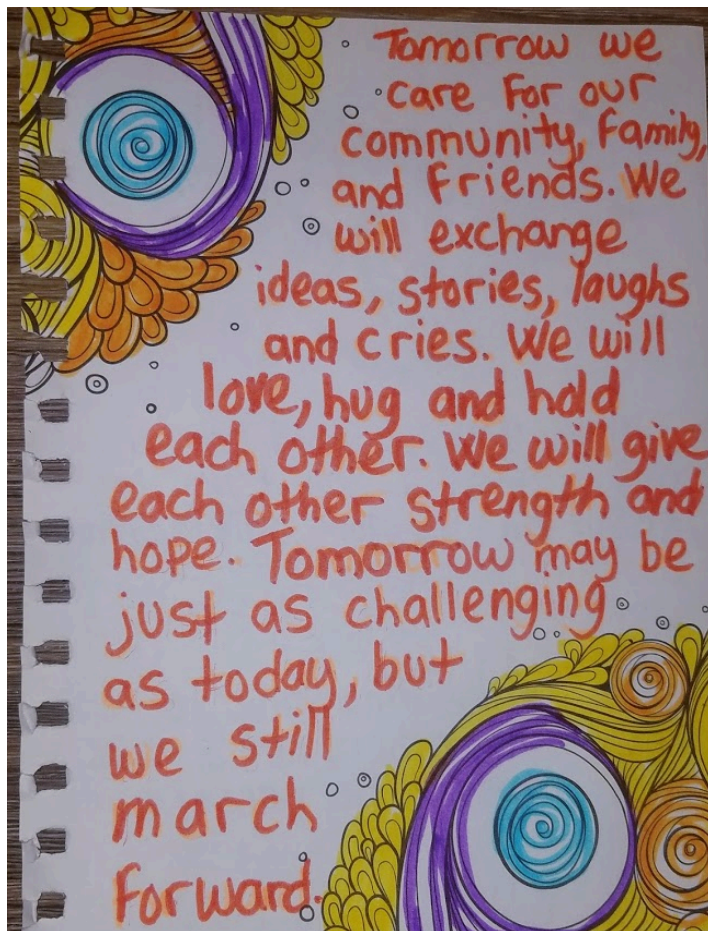 Tomorrow we
care for our
community, family,
and friends. We
will exchange
ideas, stories, laughs
and cries. We will
love, hug and hold
each other. We will give
each other strength and
hope. Tomorrow may be
just as challenging
as today, but
we still
march
forward.